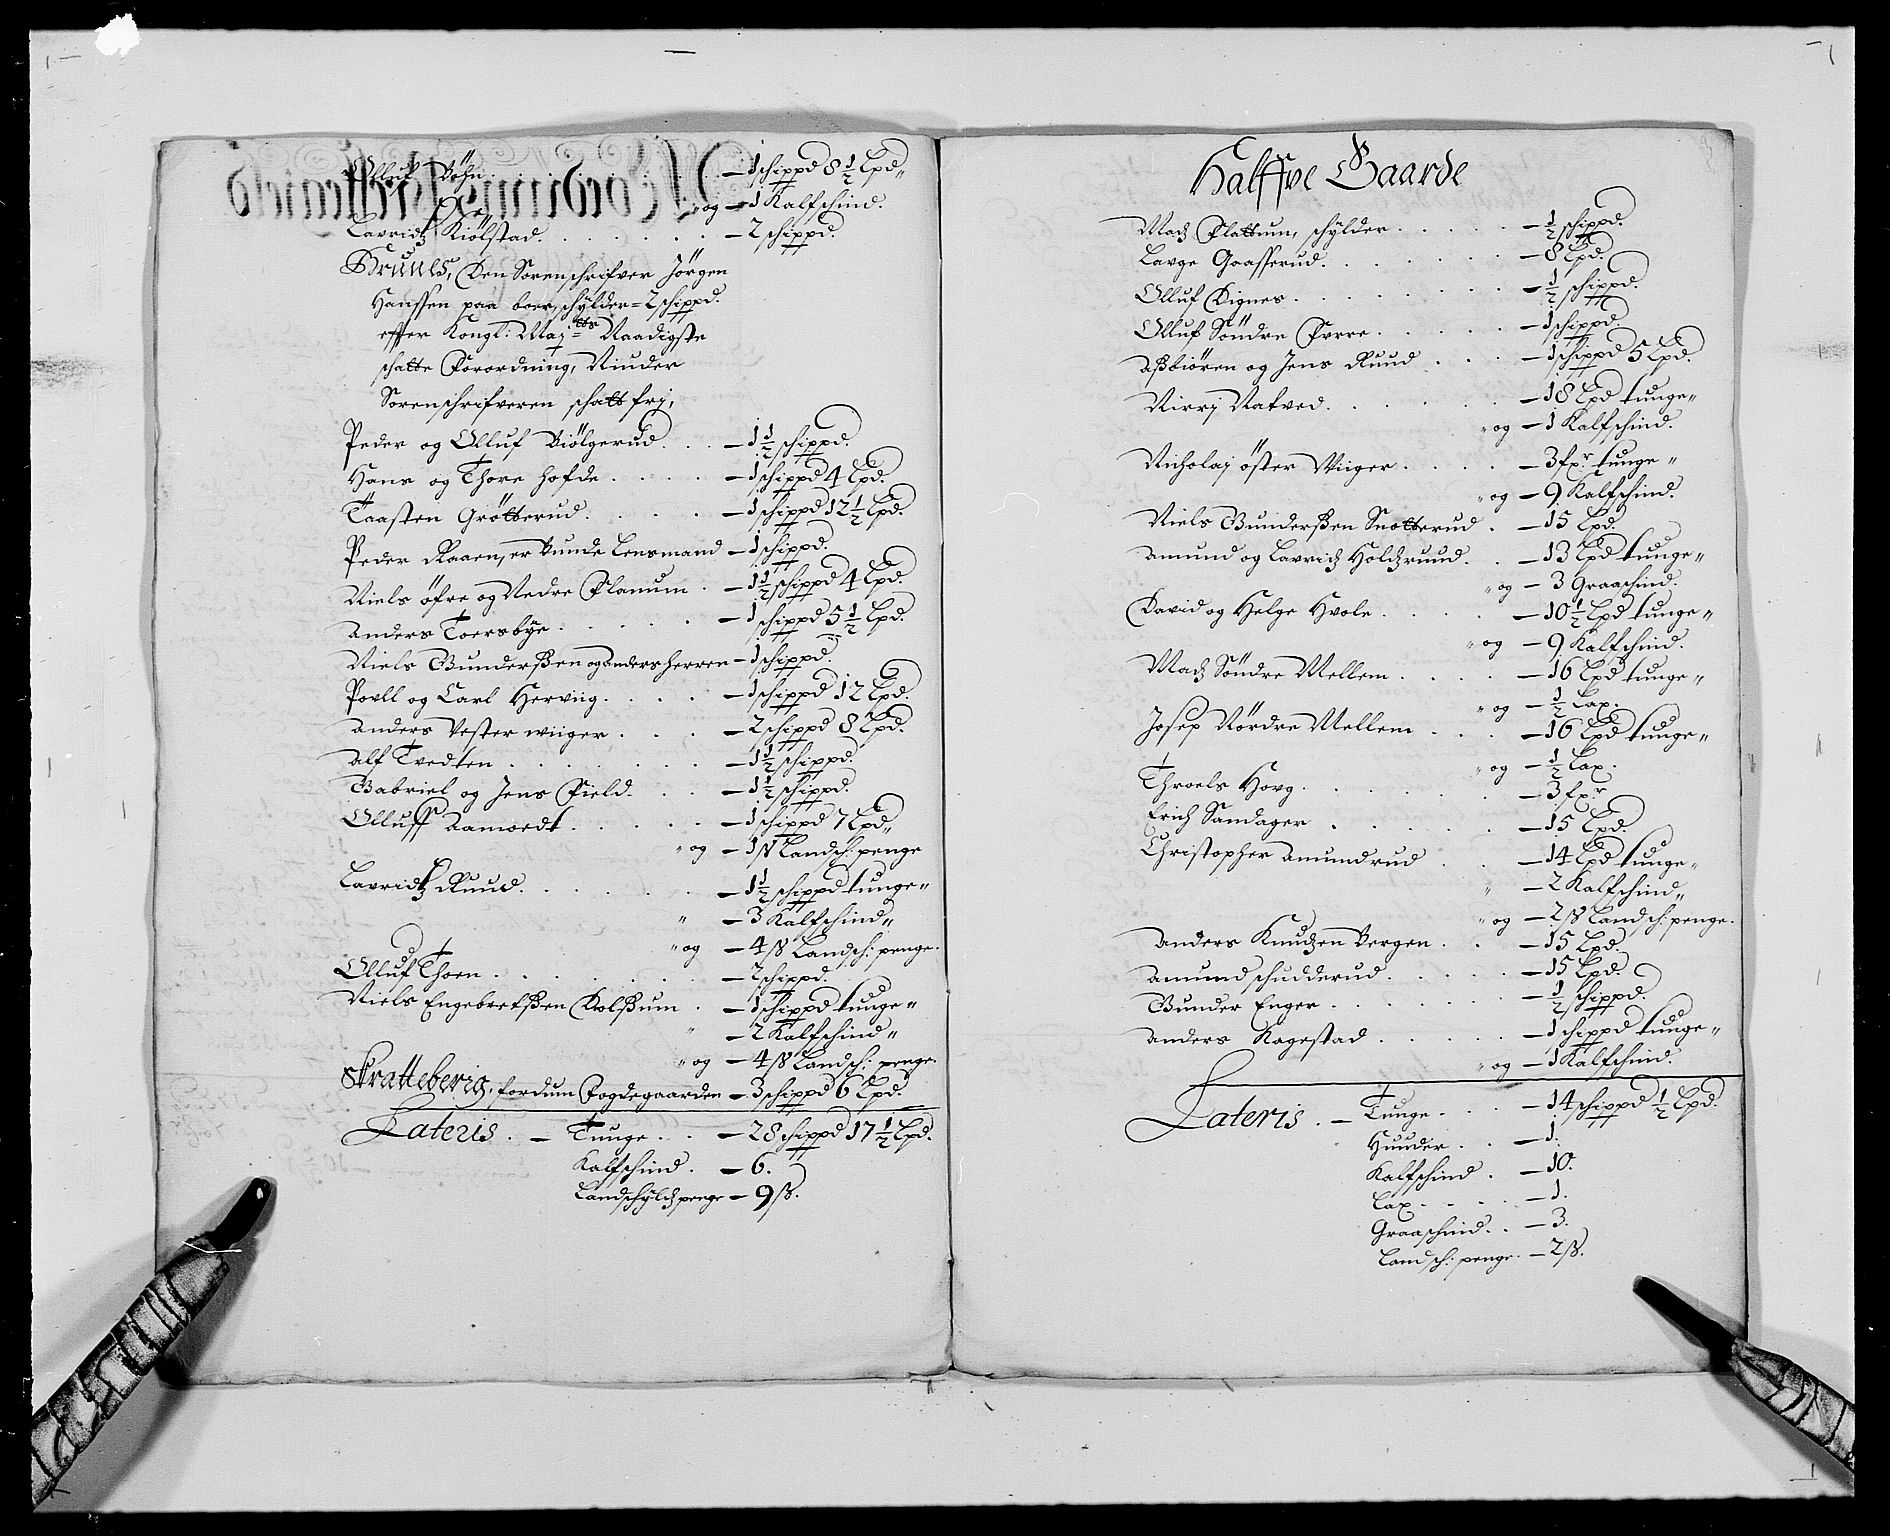 Olluf Böhn . . . . . . . — 1 schippd 8 1/2 Lpd„
„ og — 1 Kalfschind.
Lauridtz Kiölstad . . . . . — 2 schippd.
Gruues, Den Sorenschrifver Jörgen
Hanssen paa boer, schylder = 2 schippd.
efter Kongl: Maj:tts Naadigste
schatte Forordning, Niuder
Sorenschrifveren schatt frj,
Peder og Olluf Biölgerud . . — 1 1/2 schippd.
Hans og Thore Hofde . . . . — 1 schippd 4 Lpd.
Taasten Grötterud . . . . — 1 schippd 12 1/2 Lpd.
Peder Raaen, er bunde Lensmand — 1 schippd.
Niels öfre og Nedre Planum . — 1 1/2 schippd 4 Lpd.
Anders Toersbye . . . . . — 1 schippd 5 1/2 Lpd.
Niels Gunderßen og Anders Herren — 1 schippd.
Povll og Carl Herviig . . . . — 1 schippd 12 Lpd.
Anders Vester wiiger . . . — 2 schippd 8 Lpd.
Alf Tvedten . . . . . . . — 1 1/2 schippd.
Gabriel og Jens Field . . . — 1 1/2 schippd.
Olluff Aamoedt . . . . . — 1 schippd 7 Lpd„
„ og — 1 ß Landsch: penge
Lauridtz Ruud . . . . . . — 1 1/2 schippd tunge„
„ — 3 Kalfschind„
„ og — 4 ß Landsch: penge.
Olluf Thoen . . . . . . . — 2 schippd.
Niels Engebretßen Kolßum . — 1 schippd tunge„
„ — 2 Kalfschind„
„ og — 4 ß Landsch: penge.
Skratteberig, fordum Fogdegaarden — 3 schippd 6 Lpd.
Lateris . — Tunge . . — 28 schippd 17 1/2 Lpd.
Kalfschind . — 6.
Landschyldz penge — 9 ß.
Halffve Gaarde
Madz Plattum, schylder . . . . . — 1/2 schippd.
Lavge Goasserud . . . . . . — 8 Lpd.
Olluf Dignes . . . . . . . — 1/2 schippd.
Olluf Söndre . . . . . — 1 schippd
Aßbiören og Jens Ruud . . . — 1 schippd 5 Lpd.
Nirrj Natved . . . . . . — 18 Lpd tunge„
„ og — 1 Kalfschind.
Nicholaj öster Wiiger . . . . — 3 fxr tunge„
„ og — 9 Kalfschind.
Niels Gunderßen Snotterud . — 15 Lpd.
Amund og Lavridz Holdzruud . . — 13 Lpd tunge„
„ og — 3 Graaschind.
David og Helge Hvole . . . . — 10 1/2 Lpd tunge„
„ og — 9 Kalfschind.
Madz Söndre Mellem . . . . — 16 Lpd tunge„
„ og — 1/2 Lax.
Josep Nördre Mellem . . . . — 16 Lpd tunge„
„ og — 1/2 Lax.
Throels Hovg . . . . . . — 3 fxr
Erich Sandager . . . . . — 15 Lpd.
Christopher Amundrud . . — 14 Lpd tunge„
„ — 2 Kalfschind„
„ og — 2 ß Landsch: penge.
Anders Knudzen Bergen . . — 15 Lpd.
Amund schudderud . . . . . — 15 Lpd.
Gunder Enger . . . . . . . — 1/2 schippd.
Anders Kagestad . . . . . — 1 schippd tunge„
„ og — 1 Kalfschind.
Lateris . — Tunge . . . — 14 schippd 1/2 Lpd.
Huuder . . — 1.
Kalfschind . — 10.
Lax . . . . — 1.
Graaschind . . — 3.
Landsch: penge . — 2 ß.